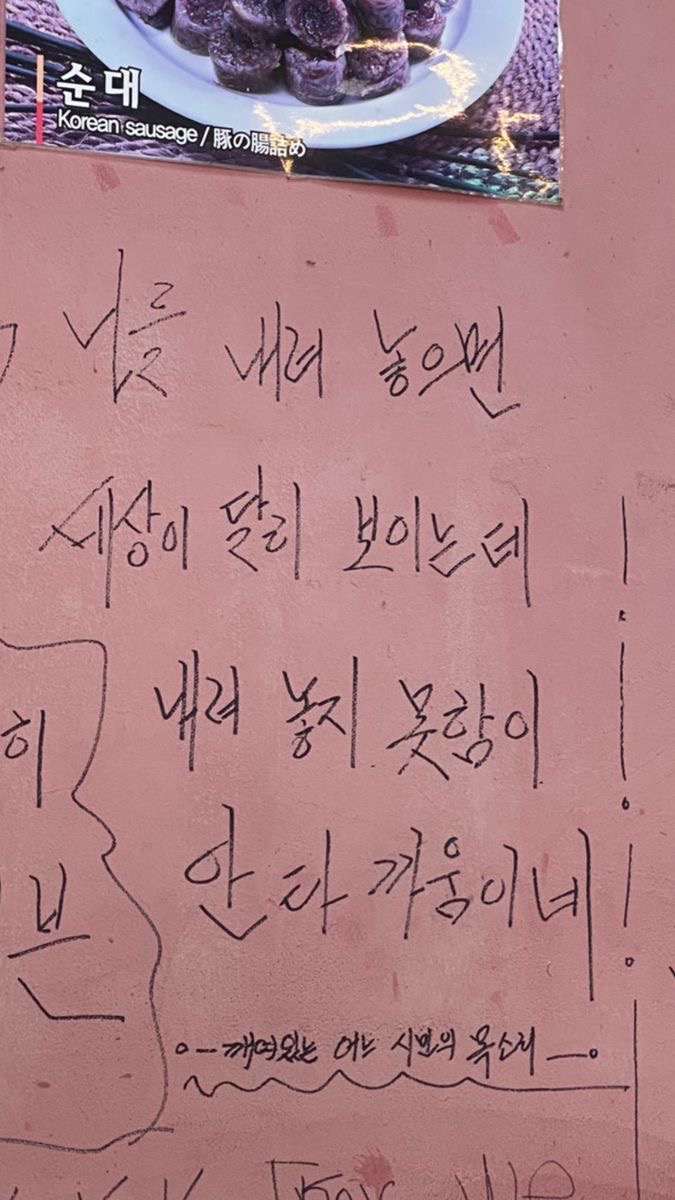 순대
Korean sausage / 豚の腸詰め
나를 내려 놓으면
세상이 달리 보이는데 !
내려 놓지 못함이 !
안타까움이네 !
히
븐
깨여있는 어느 시민의 목소리